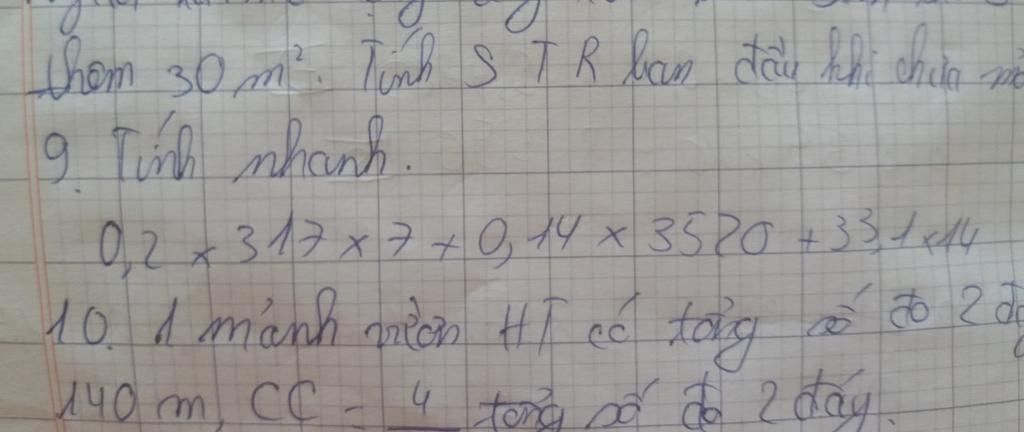 thêm 30 m². Tính S T R ban đầu khi chưa mở
9. Tính nhanh.
0,2 x 317 x 7 + 0,14 x 3520 + 33,1 x 14
10. 1 mảnh vườn HT có tổng số đo 2
140 m, CC = 4 tổng số đo 2 đáy.